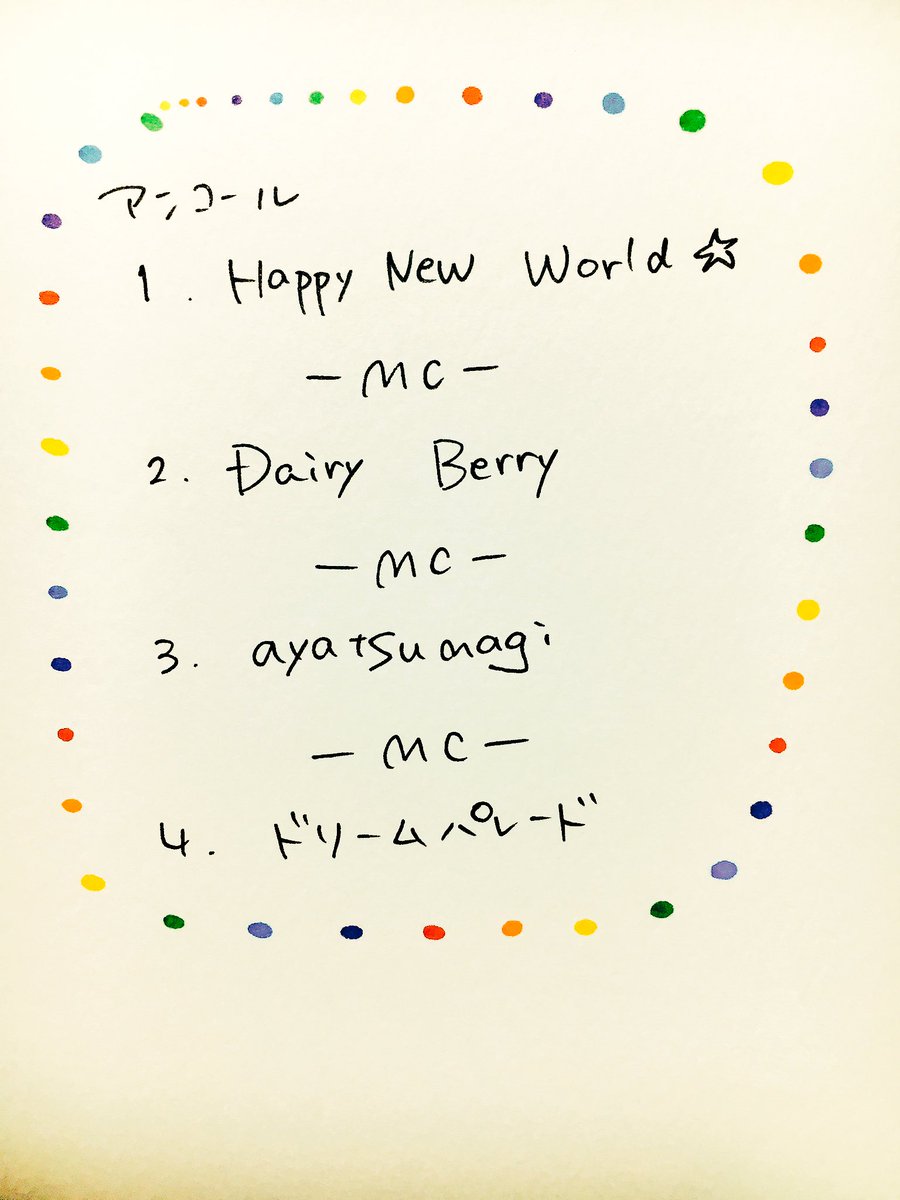 アンコール
1. Happy New World☆
－MC－
2. Dairy Berry
－MC－
3. ayatsunagi
－MC－
4. ドリームパレード